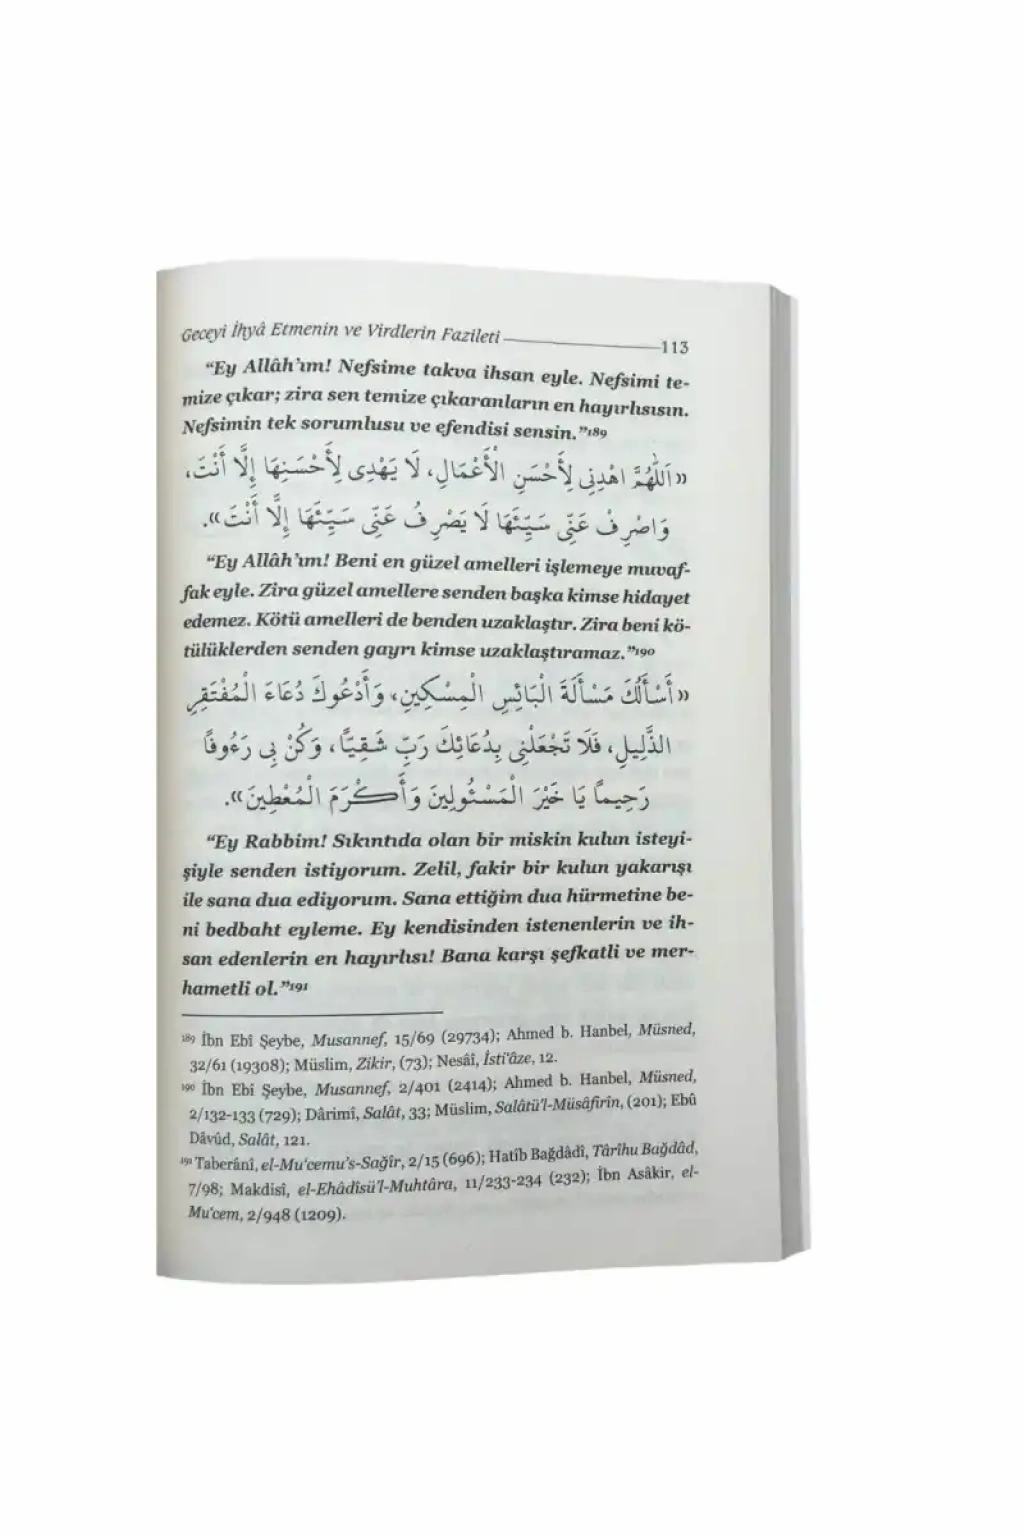 Geceyi İhyâ Etmenin ve Virdlerin Fazileti 113
“Ey Allâh’ım! Nefsime takva ihsan eyle. Nefsimi te-
mize çıkar; zira sen temize çıkaranların en hayırlısısın.
Nefsimin tek sorumlusu ve efendisi sensin.”¹⁸⁹
«اَللّٰهُمَّ اهْدِنِى لِأَحْسَنِ الْأَعْمَالِ، لَا يَهْدِى لِأَحْسَنِهَا إِلَّا أَنْتَ،
وَاصْرِفْ عَنِّى سَيِّئَهَا لَا يَصْرِفُ عَنِّى سَيِّئَهَا إِلَّا أَنْتَ».
“Ey Allâh’ım! Beni en güzel amelleri işlemeye muvaf-
fak eyle. Zira güzel amellere senden başka kimse hidayet
edemez. Kötü amelleri de benden uzaklaştır. Zira beni kö-
tülüklerden senden gayrı kimse uzaklaştıramaz.”¹⁹⁰
«أَسْأَلُكَ مَسْأَلَةَ الْبَائِسِ الْمِسْكِينِ، وَأَدْعُوكَ دُعَاءَ الْمُفْتَقِرِ
الذَّلِيلِ، فَلَا تَجْعَلْنِى بِدُعَائِكَ رَبِّ شَقِيًّا، وَكُنْ بِى رَءُوفًا
رَحِيمًا يَا خَيْرَ الْمَسْئُولِينَ وَأَكْرَمَ الْمُعْطِينَ».
“Ey Rabbim! Sıkıntıda olan bir miskin kulun isteyi-
şiyle senden istiyorum. Zelil, fakir bir kulun yakarışı
ile sana dua ediyorum. Sana ettiğim dua hürmetine be-
ni bedbaht eyleme. Ey kendisinden istenenlerin ve ih-
san edenlerin en hayırlısı! Bana karşı şefkatli ve mer-
hametli ol.”¹⁹¹
¹⁸⁹ İbn Ebî Şeybe, Musannef, 15/69 (29734); Ahmed b. Hanbel, Müsned,
32/61 (19308); Müslim, Zikir, (73); Nesâî, İsti‘âze, 12.
¹⁹⁰ İbn Ebî Şeybe, Musannef, 2/401 (2414); Ahmed b. Hanbel, Müsned,
2/132-133 (729); Dârimî, Salât, 33; Müslim, Salâtü’l-Müsâfirîn, (201); Ebû
Dâvûd, Salât, 121.
¹⁹¹ Taberânî, el-Mu‘cemu’s-Sağîr, 2/15 (696); Hatîb Bağdâdî, Târîhu Bağdâd,
7/98; Makdisî, el-Ehâdîsü’l-Muhtâra, 11/233-234 (232); İbn Asâkir, el-
Mu‘cem, 2/948 (1209).